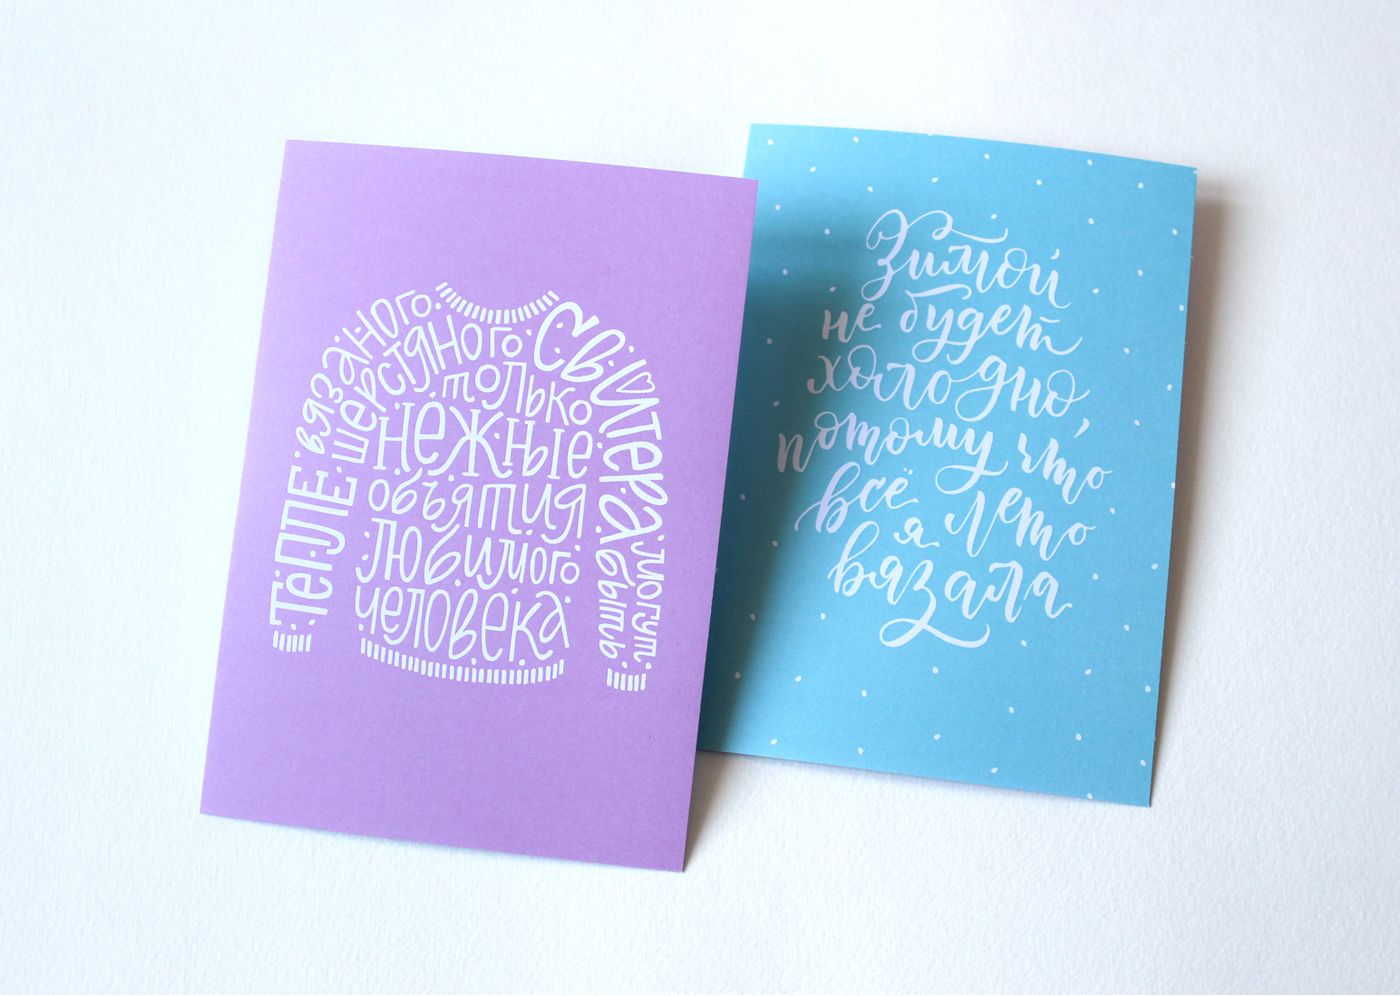 Теплее
вязаного
шерстяного
свитера
могут
быть
только
нежные
объятия
любимого
человека
Зимой
не будет
холодно,
потому что
всё лето
я
вязала